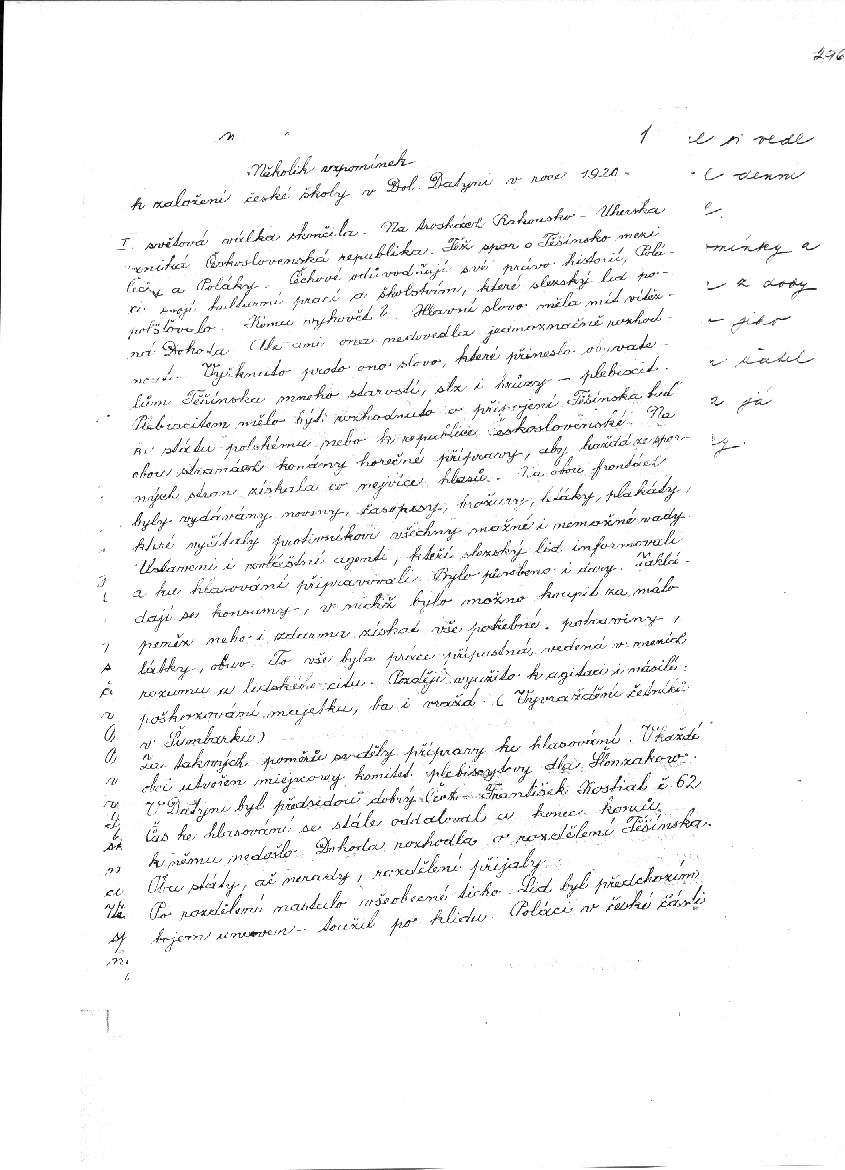 296
1
Několik vzpomínek
k založení české školy v Dol. Datyni v roce 1920.
I. světová válka skončila. Na troskách Rakousko-Uherska
vzniká Československá republika. Též spor o Těšínsko mezi
Čechy a Poláky. Čechové odůvodňují své právo historií, Polá-
ci svojí kulturní prací a školstvím, které slezský lid po-
polštovalo. Komu vyhovět? Hlavní slovo měla mít vítěz-
ná Dohoda. Ale ani ona nedovedla jednoznačně rozhod-
nout. Vyřknuto proto ono slovo, které přineslo obyvate-
lům Těšínska mnoho starostí, slz i hrůzy – plebiscit.
Plebiscitem mělo býti rozhodnuto o připojení Těšínska buď
ke státu polskému nebo k republice Československé. Na
obou stranách konány horečné přípravy, aby každá ze spor-
ných stran získala co nejvíce hlasů. Na obou frontách
byly vydávány noviny, časopisy, brožury, letáky, plakáty,
které vyčítaly protivníkovi všechny možné i nemožné vady.
Ustaveni i zvláštní agenti, kteří slezský lid informovali
a ku hlasování připravovali. Bylo působeno i dary. Zaklá-
dají se konsumy, v nichž bylo možno koupit za málo
peněz nebo i zdarma získat vše potřebné: potraviny,
látky, obuv. To vše byla práce přípustná, vedená v mezích
rozumu a lidského citu. Později využito k agitaci i násilí:
poškozování majetku, ba i vražd. (Vyvraždění četníků
v Šumbarku)
Za takových poměrů se děly přípravy ke hlasování. V každé
obci utvořen miejscowy komitét plebiscytowy dla Ślonzakow.
V Datyni byl předsedou dobrý Čech – František Kostial č 62
Čas ke hlasování se stále oddaloval a konec konců
k němu nedošlo. Dohoda rozhodla o rozdělení Těšínska.
Oba státy, ač nerady, rozdělení přijaly.
Po rozdělení nastalo všeobecné ticho. Lid byl předchozím
bojem unaven – toužil po klidu. Poláci v české části
si vedl
denní
mínky a
z doby
jako
já